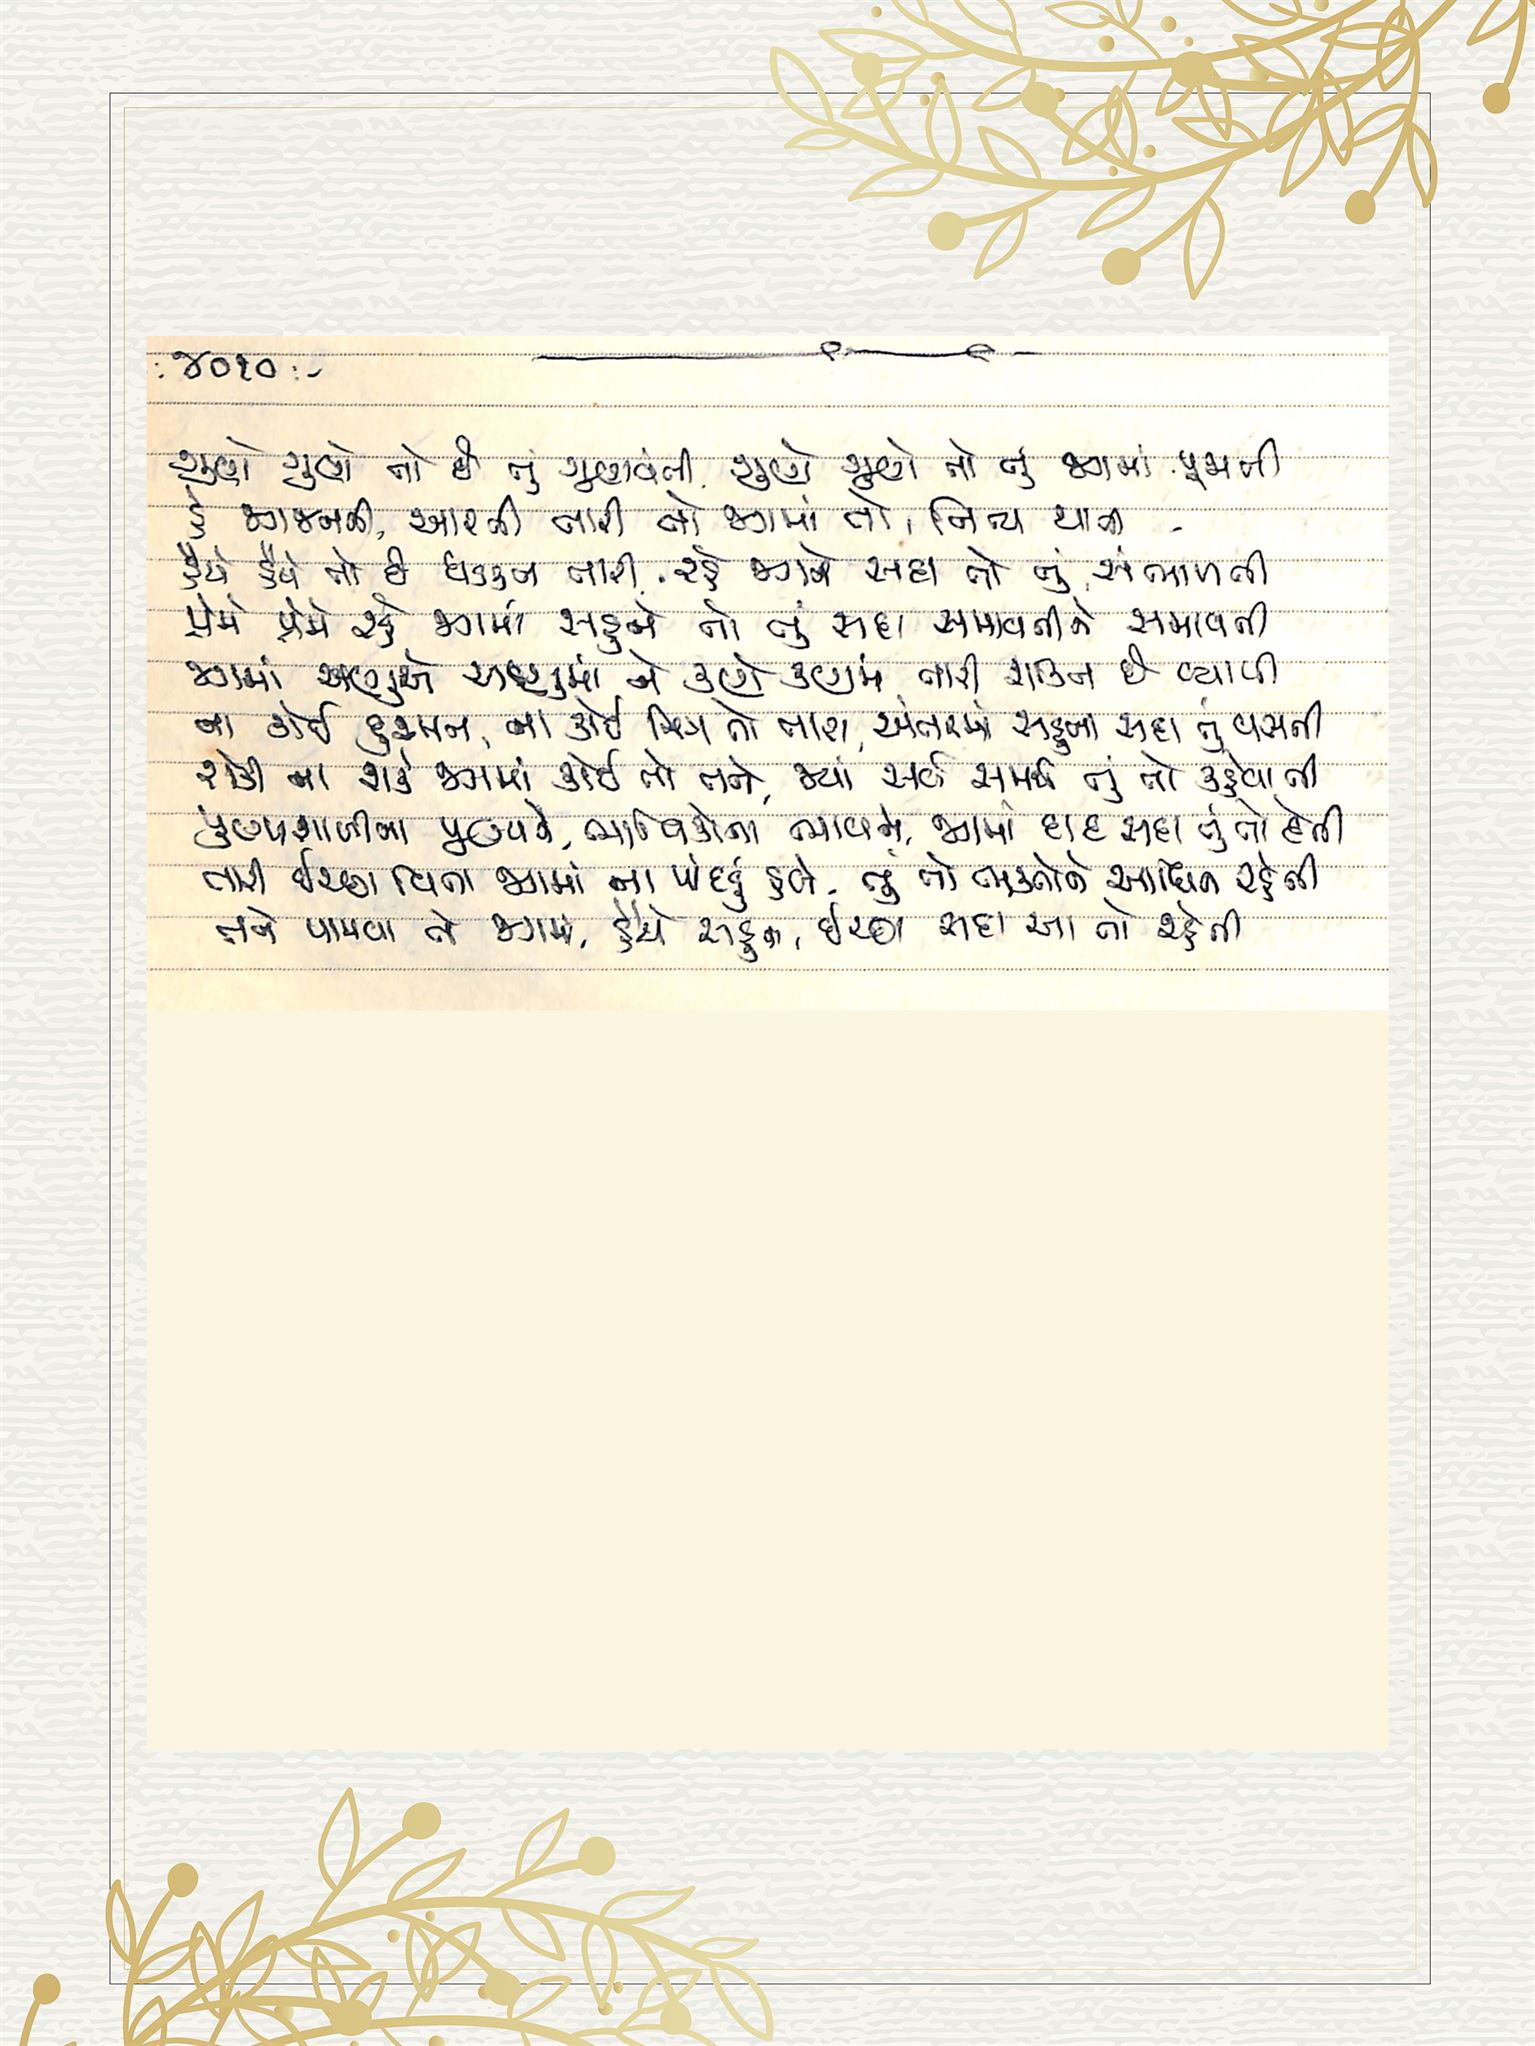 : ૪૦૧૦ :-
ગુણે ગુણે તો છે તું ગુણવંતી, ગુણે ગુણે તો તું જગમાં પૂજાતી
હે જગજનની, આરતી તારી તો જગમાં તો, નિત્ય થાતી -
હૈયે હૈયે તો છે ધડકન તારી, રહે જગને સદા તો તું સંભાળતી
પ્રેમે પ્રેમે રહે જગમાં સહુને તો તું સદા સમાવતીને સમાવતી
જગમાં અણુએ અણુમાં ને કણે કણમાં તારી શક્તિ છે વ્યાપી
ના કોઈ દુશ્મન, ના કોઈ મિત્ર તો તારા, અંતરમાં સહુના સદા તું વસતી
રોકી ના શકે જગમાં કોઈ તો તને, જ્યાં સર્વ સમર્થ તું તો કહેવાતી
પુણ્યશાળીના પુણ્યને, ભાવિકોના ભાવને, જગમાં દાદ સદા તું તો દેતી
તારી ઈચ્છા વિના જગમાં ના પાંદડું હલે, તું તો ભક્તોને આધિન રહેતી
તને પામવા તો જગમાં, હૈયે સહુના, ઈચ્છા સદા આ તો રહેતી